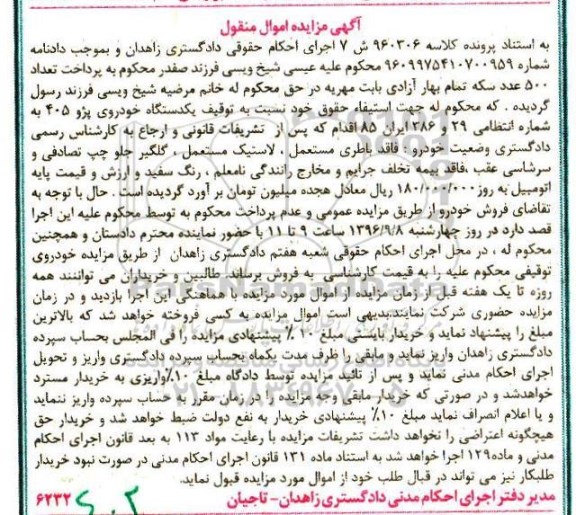 آگهی مزایده اموال منقول
به استناد پرونده کلاسه ۹۶۰۳۰۶ ش ۷ اجرای احکام حقوقی دادگستری زاهدان و بموجب دادنامه
شماره ۹۶۰۹۹۷۵۴۱۰۷۰۰۹۵۹ محکوم علیه عیسی شیخ ویسی فرزند صفدر محکوم به پرداخت تعداد
۵۰۰ عدد سکه تمام بهار آزادی بابت مهریه در حق محکوم له خانم مرضیه شیخ ویسی فرزند رسول
گردیده . که محکوم له جهت استیفاء حقوق خود نسبت به توقیف یکدستگاه خودروی پژو ۴۰۵ به
شماره انتظامی ۲۹ و ۲۸۶ ایران ۸۵ اقدام که پس از تشریفات قانونی و ارجاع به کارشناس رسمی
دادگستری وضعیت خودرو : فاقد باطری مستعمل . لاستیک مستعمل . گلگیر جلو چپ تصادفی و
سرشاسی عقب .فاقد بیمه تخلف جرایم و مخارج رانندگی نامعلم . رنگ سفید و ارزش و قیمت پایه
اتومبیل به روز ۱۸۰/۰۰۰/۰۰۰ ریال معادل هجده میلیون تومان بر آورد گردیده است . حال با توجه به
تقاضای فروش خودرو از طریق مزایده عمومی و عدم پرداخت محکوم به توسط محکوم علیه این اجرا
قصد دارد در روز چهارشنبه ۱۳۹۶/۹/۸ ساعت ۹ تا ۱۱ با حضور نماینده محترم دادستان و همچنین
محکوم له ، در محل اجرای احکام حقوقی شعبه هفتم دادگستری زاهدان از طریق مزایده خودروی
توقیفی محکوم علیه را به قیمت کارشناسی به فروش برساند. طالبین و خریداران می توانند همه
روزه تا یک هفته قبل از زمان مزایده از اموال مورد مزایده با هماهنگی این اجرا بازدید و در زمان
مزایده حضوری شرکت نمایند.بدیهی است اموال مزایده به کسی فروخته خواهد شد که بالاترین
مبلغ را پیشنهاد نماید و خریدار بایستی مبلغ ۱۰ ٪ پیشنهادی مزایده را فی المجلس بحساب سپرده
دادگستری زاهدان واریز نماید و مابقی را ظرف مدت یکماه بحساب سپرده دادگستری واریز و تحویل
اجرای احکام مدنی نماید و پس از تائید مزایده توسط دادگاه مبلغ ۱۰٪واریزی به خریدار مسترد
خواهدشد و در صورتی که خریدار مابقی وجه مزایده را در زمان مقرر به حساب سپرده واریز ننماید
و یا اعلام انصراف نماید مبلغ ۱۰٪ پیشنهادی خریدار به نفع دولت ضبط خواهد شد و خریدار حق
هیچگونه اعتراضی را نخواهد داشت تشریفات مزایده با رعایت مواد ۱۱۳ به بعد قانون اجرای احکام
مدنی و ماده۱۲۹ اجرا خواهد شد به استناد ماده ۱۳۱ قانون اجرای احکام مدنی در صورت نبود خریدار
طلبکار نیز می تواند در قبال طلب خود از اموال مورد مزایده قبول نماید.
مدیر دفتر اجرای احکام مدنی دادگستری زاهدان- تاجیان ۶۲۳۲